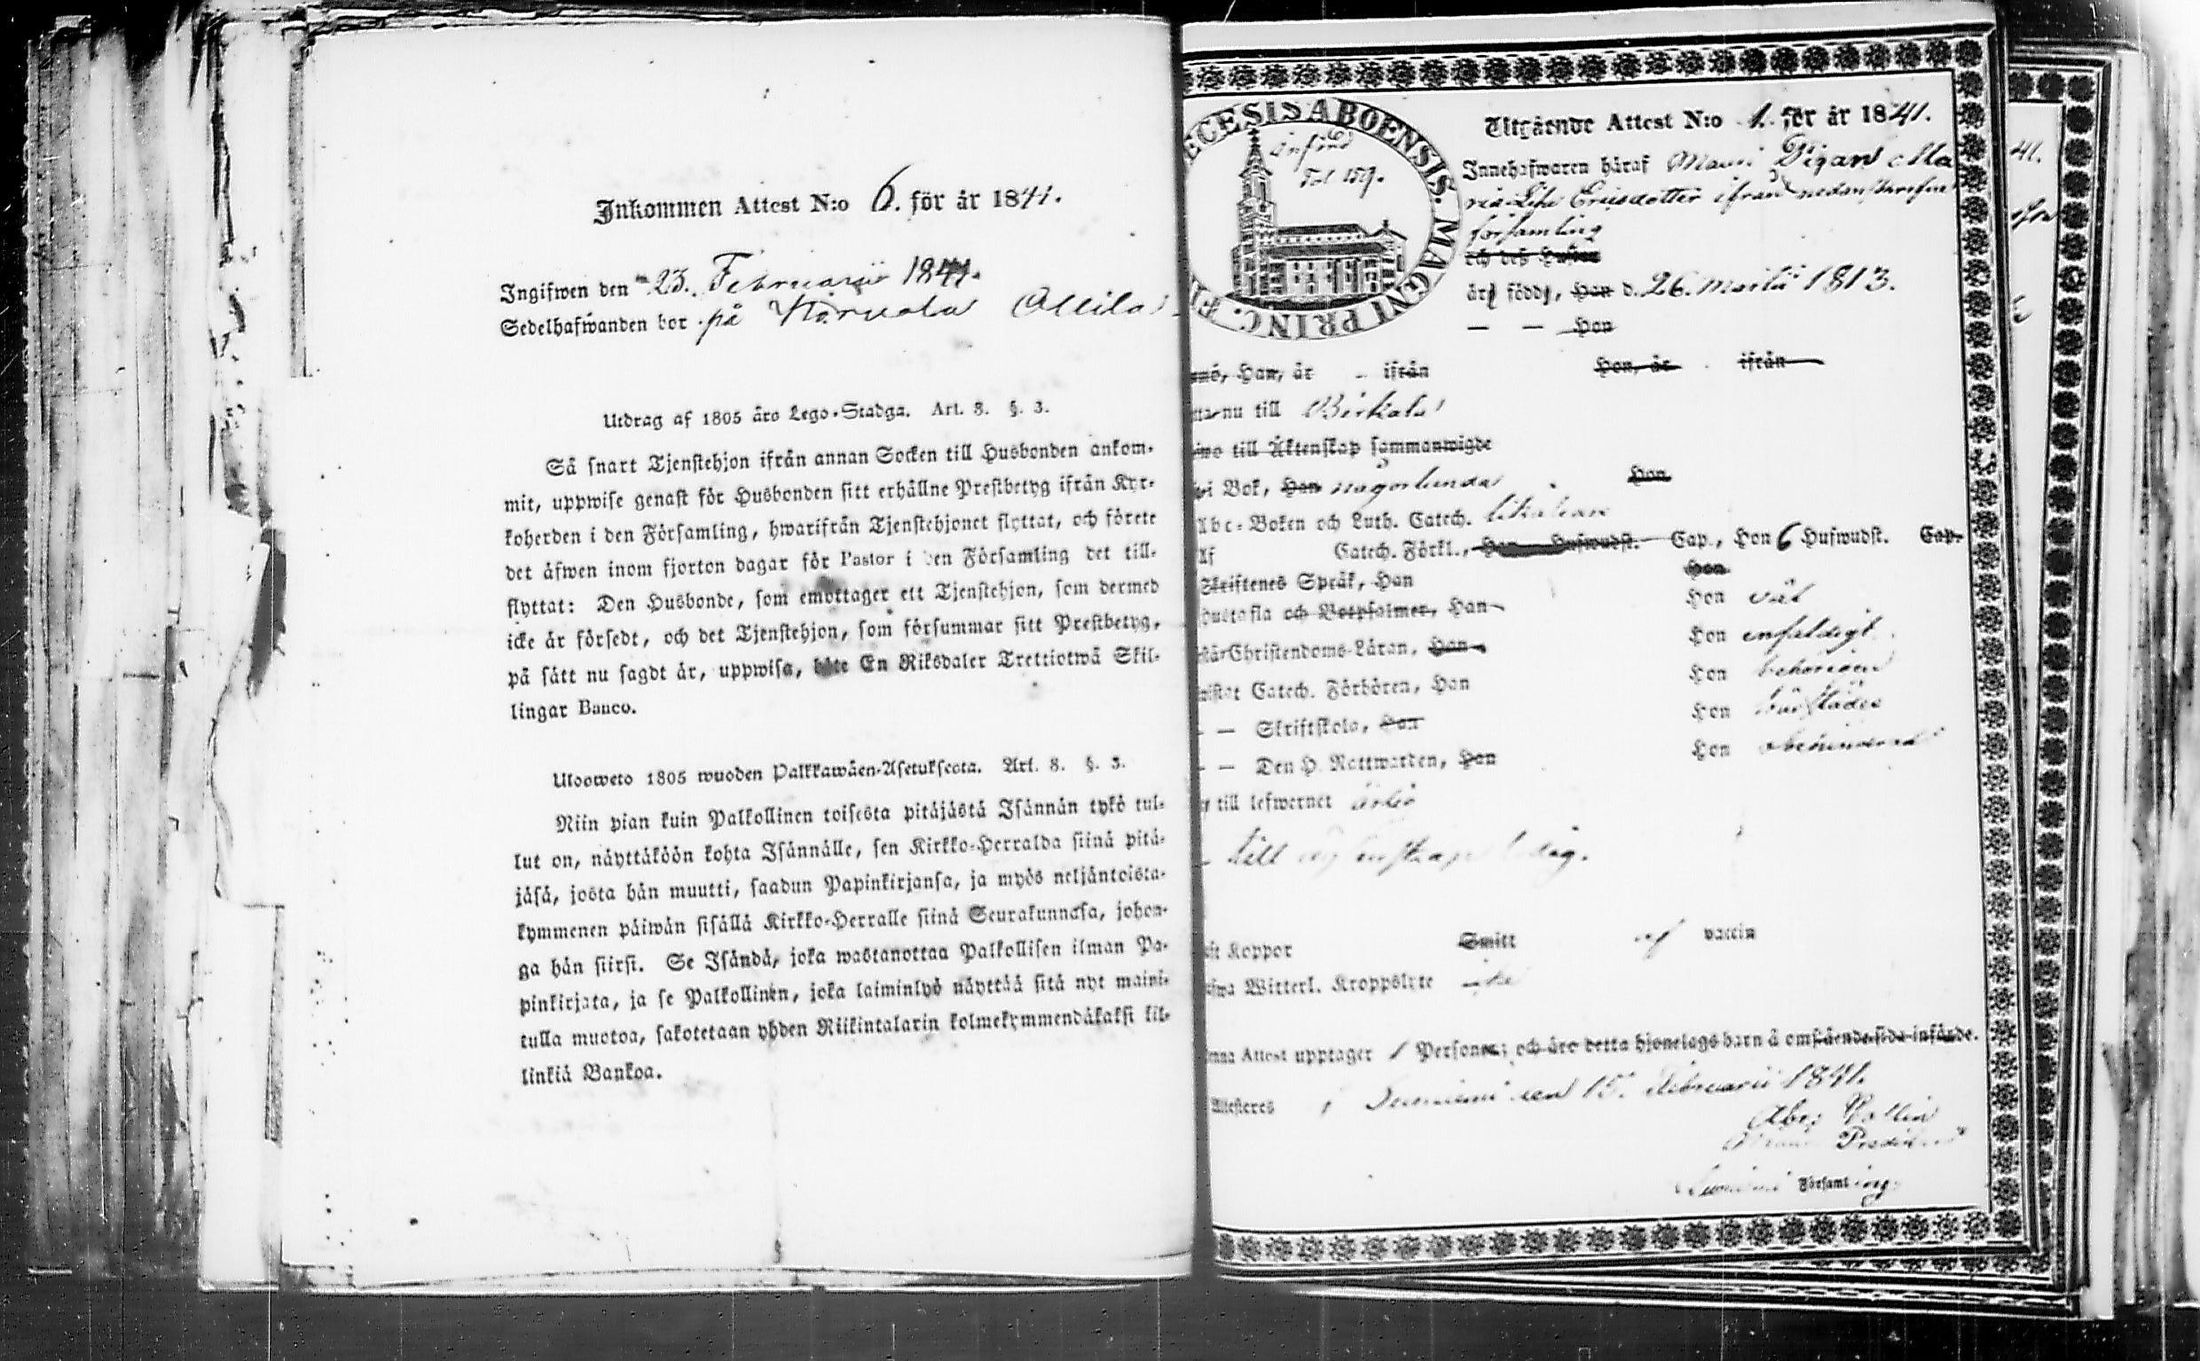 Inkommen Attest N:o 6. för år 1841.
Ingifwen den 23. Februarii 1841.
Sedelhafwanden bor på
Utdrag af 1805 års Lego-Stadga. Art. 8. §. 3.
Så snart Tjenstehjon ifrån annan Socken till Husbonden ankom-
mit, uppwise genast för Husbonden sitt erhållne Prestbetyg ifrån Kyr-
koherden i den Församling, hwarifrån Tjenstehjonet flyttat, och förete
det äfwen inom fjorton dagar för Pastor i den Församling det till-
flyttat: Den Husbonde, som emottager ett Tjenstehjon, som dermed
icke är försedt, och det Tjenstehjon, som försummar sitt Prestbetyg,
på sätt nu sagdt är, uppwisa, böte En Riksdaler Trettiotwå Skil-
lingar Banco.
Ulosweto 1805 wuoden Palkkawäen-Asetuksesta. Art. 8. §. 3.
Niin pian kuin Palkollinen toisesta pitäjästä Isännän tykö tul-
lut on, näyttäköön kohta Isännälle, sen Kirkko-Herralda siinä pitä-
jäsä, josta hän muutti, saadun Papinkirjansa, ja myös neljäntoista-
kymmenen päiwän sisällä Kirkko-Herralle siinä Seurakunnasa, johon-
ga hän siirsi. Se Isändä, joka wastanottaa Palkollisen ilman Pa-
pinkirjata, ja se Palkollinen, joka laiminlyö näyttää sitä nyt maini-
tulla muotoa, sakotetaan yhden Riikintalarin kolmekymmendäkaksi kil-
linkiä Bankoa.
ECESIS ABOENSIS. MAGNI PRINC. FI
införd
Fol 159.
Utgående Attest N:o 1. för år 1841.
Innehafwaren häraf Pigan Ma
ria Ersdotter ifrån
församling
och des Hustru
är född, Han d. 26. Martii 1813.
— — Hon
Han, är ifrån Hon, är ifrån
nu till Birkala
till Äktenskap sammanwigde
i Bok, Han någorlunda Hon
Abc-Boken och Luth. Catech. likaledes
Catech. Förkl., Han Hufwudst. Cap., Hon 6 Hufwudst. Cap.
Skriftenes Språk, Han Hon
Hustafla och Botpsalmer, Han Hon wäl
Christendoms-Läran, Han Hon enfaldigt
Catech. Förhören, Han Hon
— — Skriftskola, Han Hon
— — Den H. Nattwarden, Han Hon obehindrad
till lefwernet ärlig
till ledig.
Koppor Smitt af vaccin
Witterl. Kroppslyte icke
Attest upptager 1 Personer; och äro detta hjonelags barn å omstående sida införde.
Attesteras i Suoniemi den 15. Februarii 1841.
Abr:
Suoniemi Församling.
41.